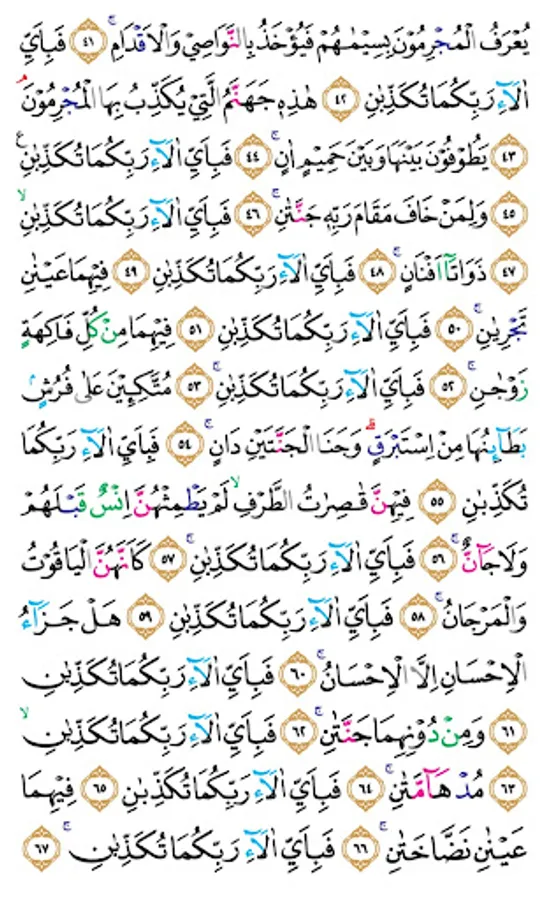 يُعْرَفُ الْمُجْرِمُوْنَ بِسِيْمٰىهُمْ فَيُؤْخَذُ بِالنَّوَاصِيْ وَالْاَقْدَامِۚ ٤١ فَبِاَيِّ
اٰلَاۤءِ رَبِّكُمَا تُكَذِّبٰنِ ٤٢ هٰذِهٖ جَهَنَّمُ الَّتِيْ يُكَذِّبُ بِهَا الْمُجْرِمُوْنَۘ
٤٣ يَطُوْفُوْنَ بَيْنَهَا وَبَيْنَ حَمِيْمٍ اٰنٍۚ ٤٤ فَبِاَيِّ اٰلَاۤءِ رَبِّكُمَا تُكَذِّبٰنِ ࣖ
٤٥ وَلِمَنْ خَافَ مَقَامَ رَبِّهٖ جَنَّتٰنِۚ ٤٦ فَبِاَيِّ اٰلَاۤءِ رَبِّكُمَا تُكَذِّبٰنِۙ
٤٧ ذَوَاتَآ اَفْنَانٍۚ ٤٨ فَبِاَيِّ اٰلَاۤءِ رَبِّكُمَا تُكَذِّبٰنِ ٤٩ فِيْهِمَا عَيْنٰنِ
تَجْرِيٰنِۚ ٥٠ فَبِاَيِّ اٰلَاۤءِ رَبِّكُمَا تُكَذِّبٰنِ ٥١ فِيْهِمَا مِنْ كُلِّ فَاكِهَةٍ
زَوْجٰنِۚ ٥٢ فَبِاَيِّ اٰلَاۤءِ رَبِّكُمَا تُكَذِّبٰنِۚ ٥٣ مُتَّكِـِٕيْنَ عَلٰى فُرُشٍۢ
بَطَاۤىِٕنُهَا مِنْ اِسْتَبْرَقٍۗ وَجَنَا الْجَنَّتَيْنِ دَانٍۚ ٥٤ فَبِاَيِّ اٰلَاۤءِ رَبِّكُمَا
تُكَذِّبٰنِ ٥٥ فِيْهِنَّ قٰصِرٰتُ الطَّرْفِۙ لَمْ يَطْمِثْهُنَّ اِنْسٌ قَبْلَهُمْ
وَلَا جَاۤنٌّۚ ٥٦ فَبِاَيِّ اٰلَاۤءِ رَبِّكُمَا تُكَذِّبٰنِۚ ٥٧ كَاَنَّهُنَّ الْيَاقُوْتُ
وَالْمَرْجَانُۚ ٥٨ فَبِاَيِّ اٰلَاۤءِ رَبِّكُمَا تُكَذِّبٰنِ ٥٩ هَلْ جَزَاۤءُ
الْاِحْسَانِ اِلَّا الْاِحْسَانُۚ ٦٠ فَبِاَيِّ اٰلَاۤءِ رَبِّكُمَا تُكَذِّبٰنِ
٦١ وَمِنْ دُوْنِهِمَا جَنَّتٰنِۚ ٦٢ فَبِاَيِّ اٰلَاۤءِ رَبِّكُمَا تُكَذِّبٰنِۙ
٦٣ مُدْهَاۤمَّتٰنِۚ ٦٤ فَبِاَيِّ اٰلَاۤءِ رَبِّكُمَا تُكَذِّبٰنِ ٦٥ فِيْهِمَا
عَيْنٰنِ نَضَّاخَتٰنِۚ ٦٦ فَبِاَيِّ اٰلَاۤءِ رَبِّكُمَا تُكَذِّبٰنِۚ ٦٧